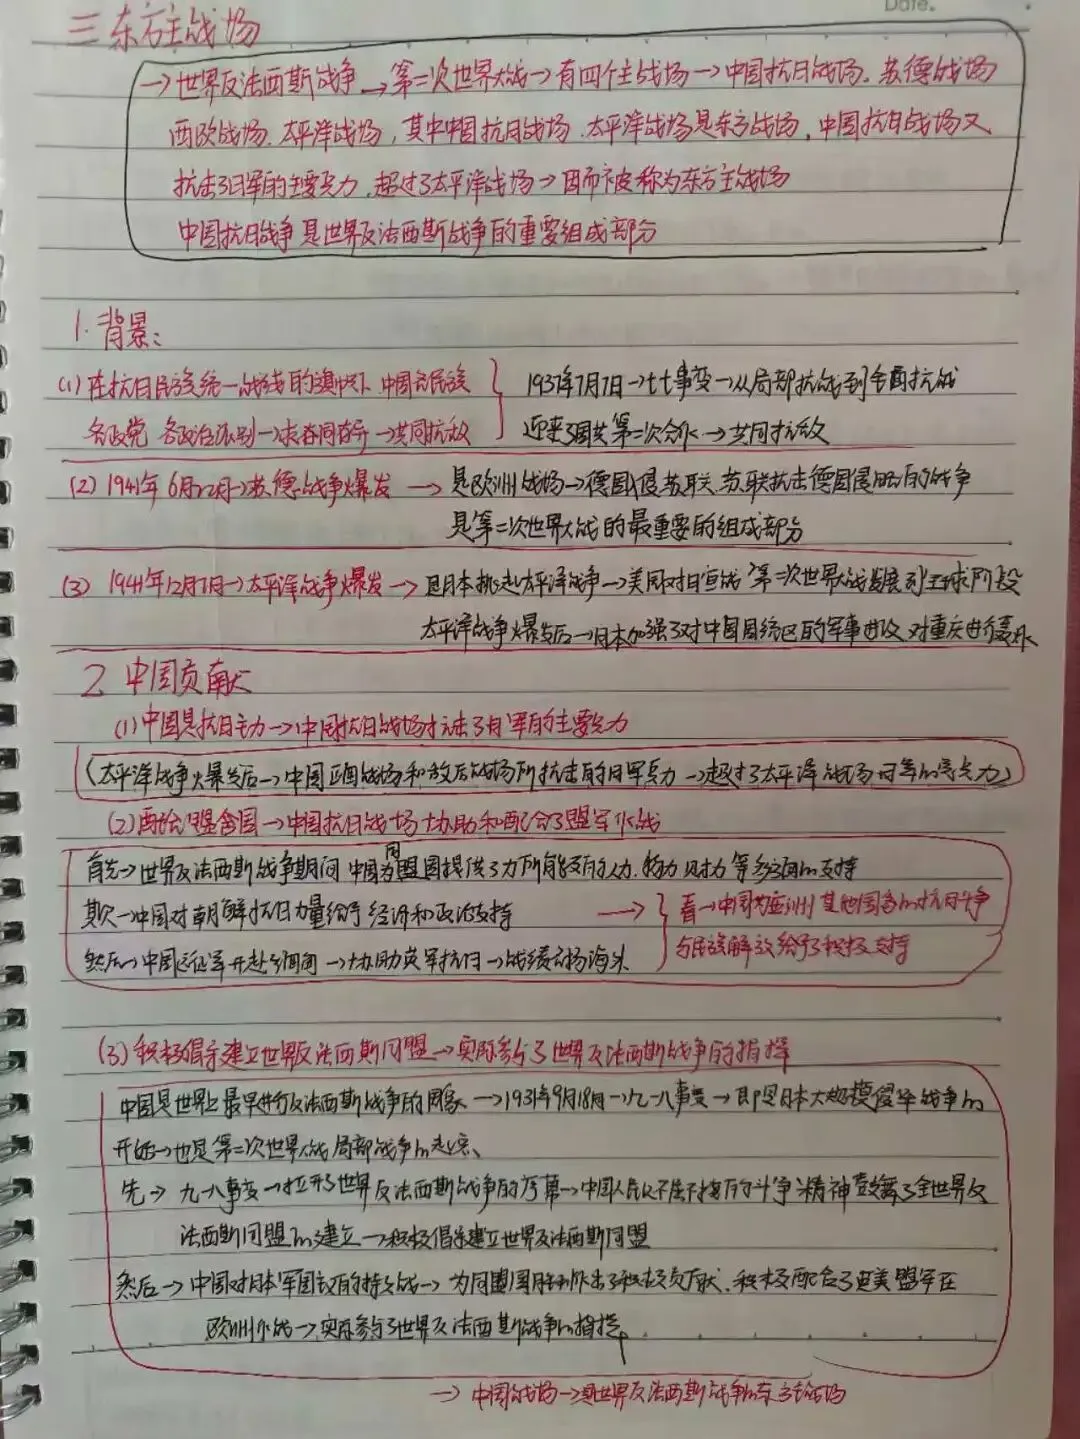 Date.
三 东方主战场
→世界反法西斯战争→第二次世界大战→有四个主战场→中国抗日战场、苏德战场
西欧战场、太平洋战场,其中中国抗日战场、太平洋战场是东方战场,中国抗日战场又
抗击了日军的主要兵力,超过了太平洋战场→因而被称为东方主战场
中国抗日战争是世界反法西斯战争的重要组成部分
1.背景:
(1)在抗日民族统一战线的旗帜下 中国各民族 1937年7月7日→七七事变→从局部抗战到全面抗战
各政党 各政治派别→求存同存异→共同抗敌 迎来了国共第二次合作→共同抗敌
(2)1941年6月22日→苏德战争爆发→是欧洲战场→德国侵苏联、苏联抗击德国侵略的战争
是第二次世界大战的最重要的组成部分
(3)1941年12月7日→太平洋战争爆发→是日本挑起太平洋战争→美国对日宣战 第二次世界大战发展到全球阶段
太平洋战争爆发后→日本加强了对中国国统区的军事进攻 对重庆进行轰炸
2 中国贡献
(1)中国是抗日主力→中国抗日战场抗击了日军的主要兵力
(太平洋战争爆发后→中国正面战场和敌后战场所抗击的日军兵力→超过了太平洋战场日军的总兵力)
(2)配合同盟国→中国抗日战场协助和配合了盟军作战
首先→世界反法西斯战争期间 中国为同盟国提供了力所能及的人力、物力 财力等多方面的支持
其次→中国对朝鲜抗日力量给予经济和政治支持 → 看→中国为亚洲其他国家的抗日斗争
然后→中国远征军开赴缅甸→协助英军抗日→战绩名扬海外 与民族解放给予了积极支持
(3)积极倡导建立世界反法西斯同盟→实际参与了世界反法西斯战争的指挥
中国是世界上最早进行反法西斯战争的国家→1931年9月18日→九一八事变→即是日本大规模侵华战争的
开始→也是第二次世界大战局部战争的起点、
先→九一八事变→拉开了世界反法西斯战争的序幕→中国人民不屈不挠的斗争精神鼓舞了全世界反
法西斯同盟的建立→积极倡导建立世界反法西斯同盟
然后→中国对日本军国主义的持久战→为同盟国胜利作出了积极贡献、积极配合了英美盟军在
欧洲作战→实际参与了世界反法西斯战争的指挥
→中国战场→是世界反法西斯战争的东方主战场